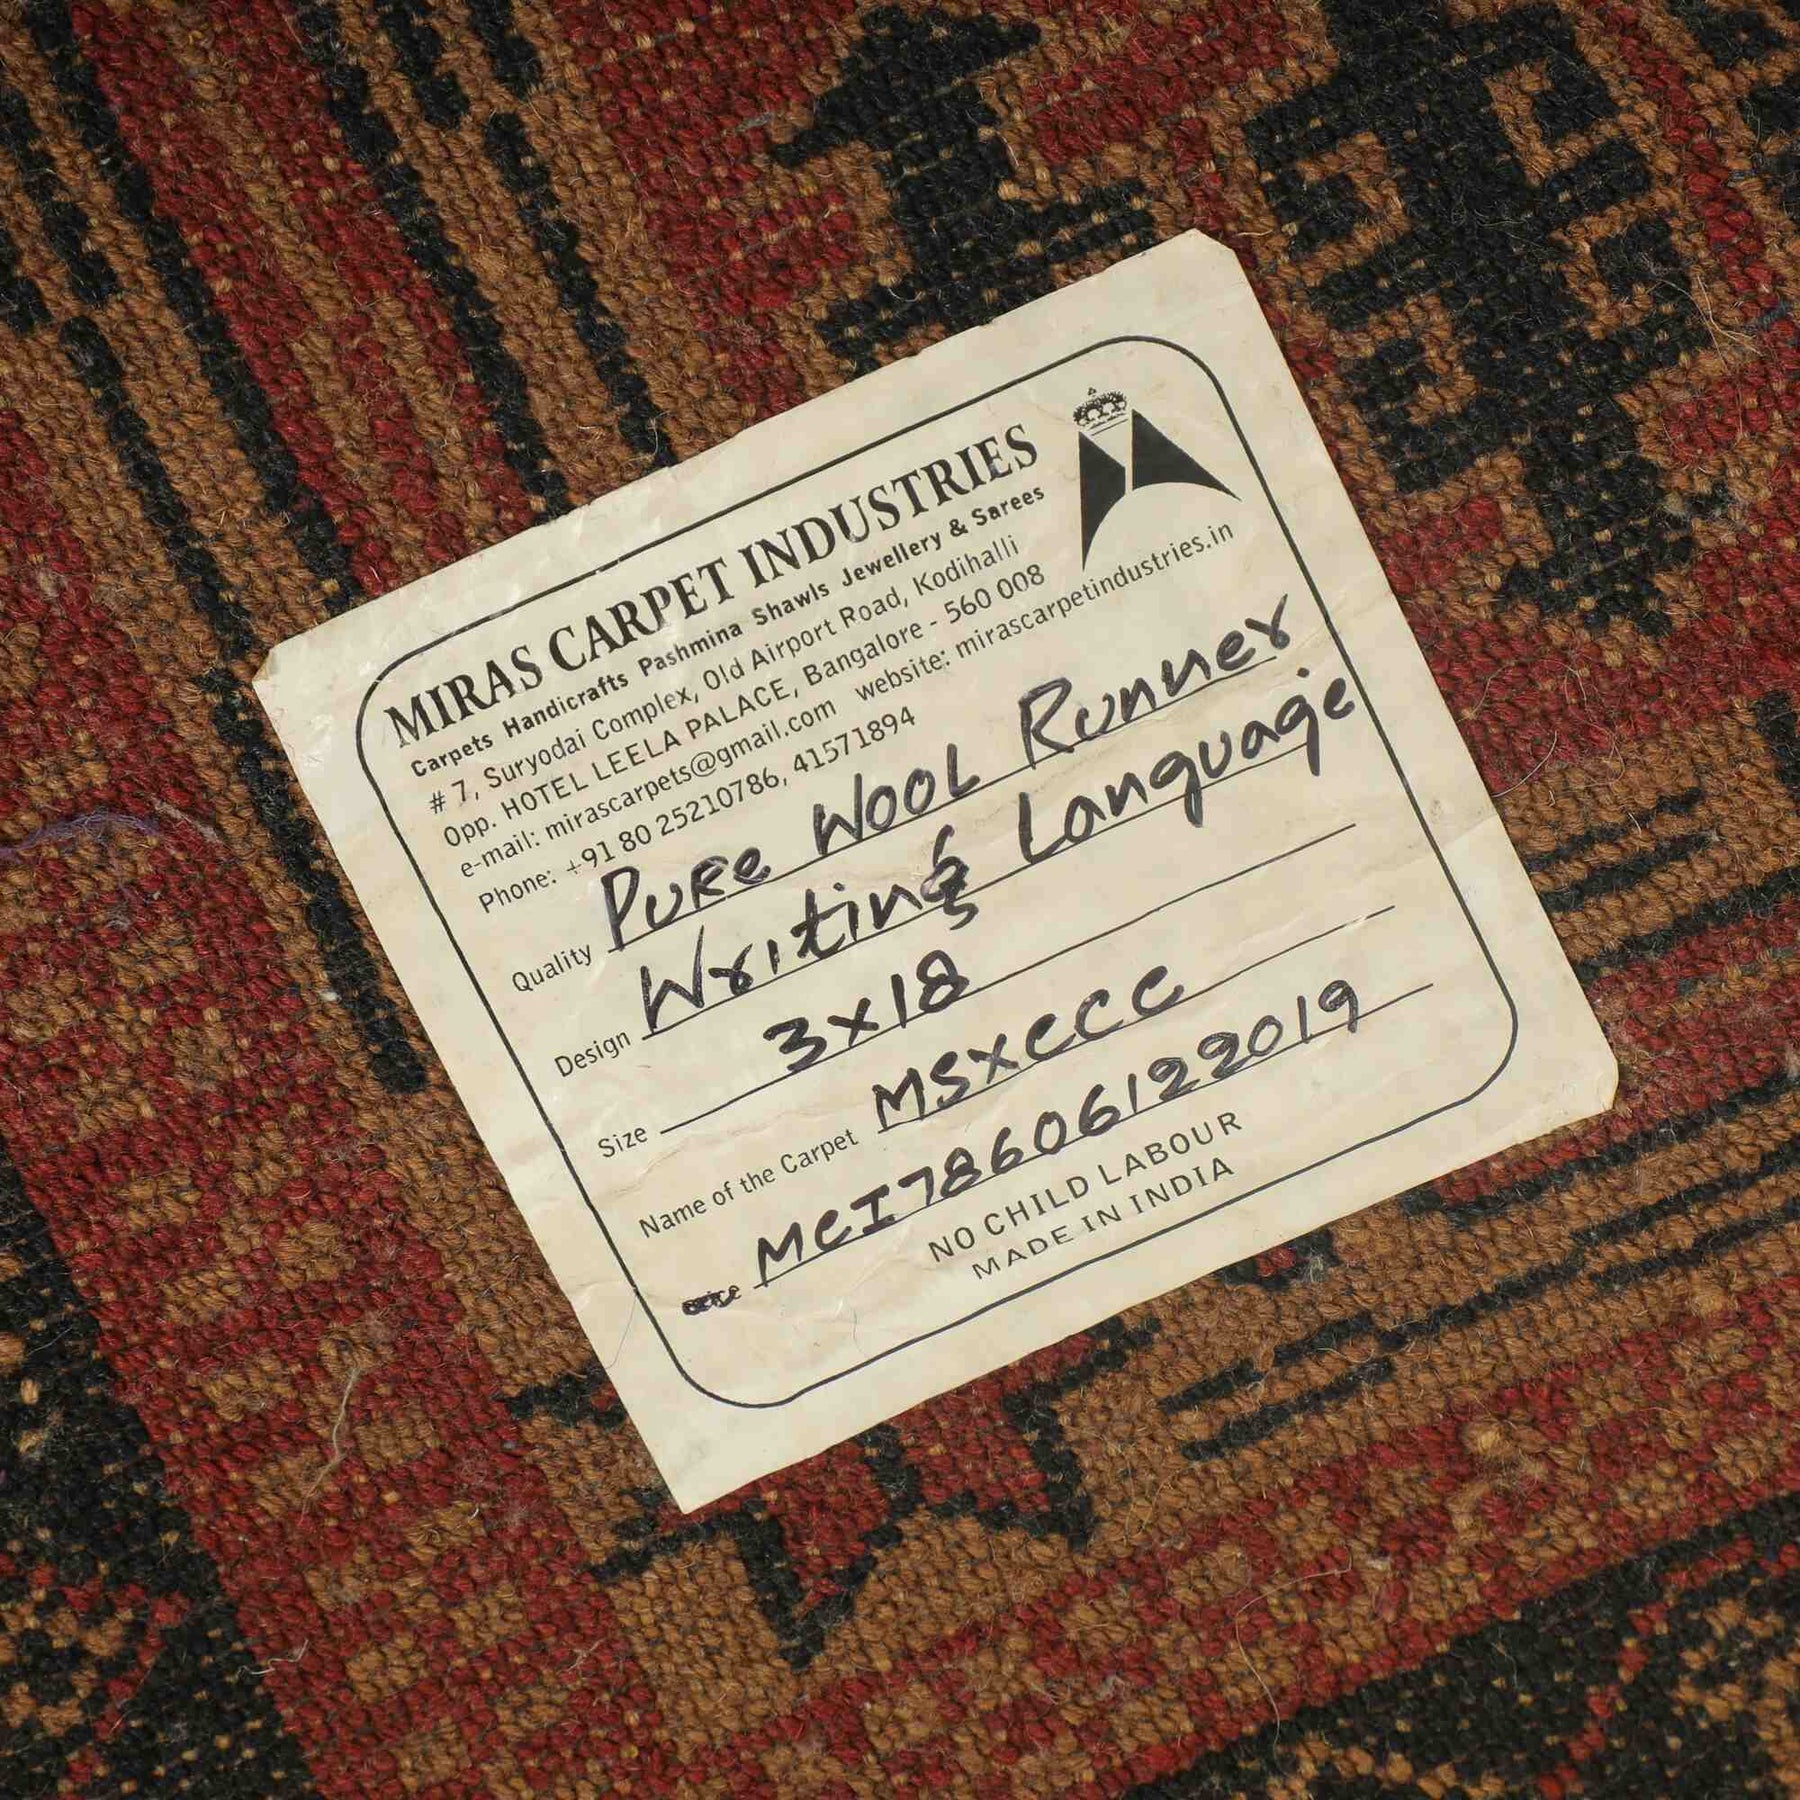 MIRAS CARPET INDUSTRIES
Carpets Handicrafts Pashmina Shawls Jewellery & Sarees
# 7, Suryodai Complex, Old Airport Road, Kodihalli
Opp. HOTEL LEELA PALACE, Bangalore - 560 008
e-mail: mirascarpets@gmail.com website: mirascarpetindustries.in
Phone: +91 80 25210786, 41571894
Quality PURe WOOL Runner
Design Writing Language
Size 3x18
Name of the Carpet MSXCCC
MCI78606122019
NO CHILD LABOUR
MADE IN INDIA